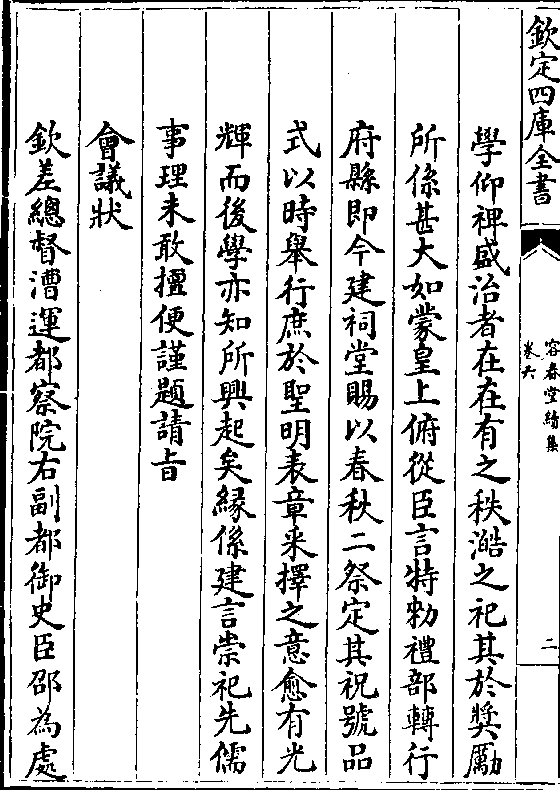 欽定四庫全書
容春堂續集
卷六
二
學仰裨盛治者在在有之秩澔之祀其於奬勵
所係甚大如蒙皇上俯從臣言特勅禮部轉行
府縣即今建祠堂賜以春秋二祭定其祝號品
式以時舉行庶於聖明表章采擇之意愈有光
輝而後學亦知所興起矣縁係建言崇祀先儒
事理未敢擅便謹題請㫖
會議狀
欽差總督漕運都察院右副都御史臣邵為處